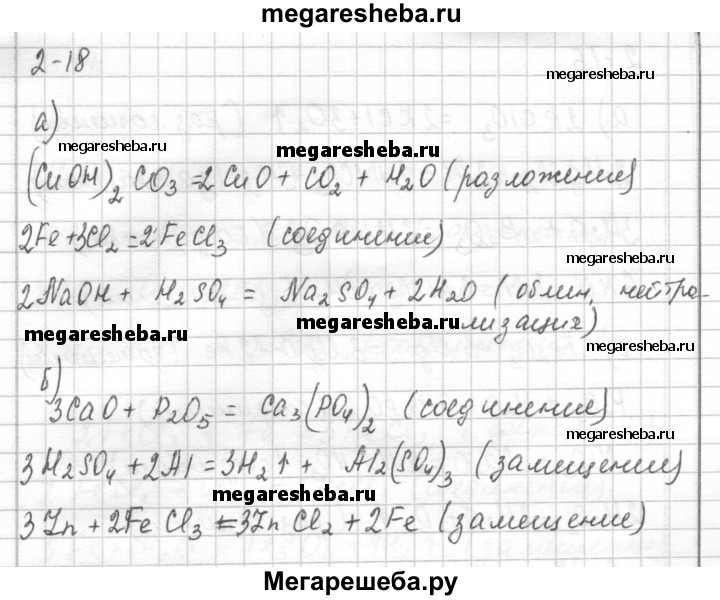 megaresheba.ru
2-18
megaresheba.ru
а)
megaresheba.ru
megaresheba.ru
(CuOH)₂CO₃ = 2CuO + CO₂ + H₂O (разложение)
2Fe + 3Cl₂ = 2FeCl₃ (соединение)
megaresheba.ru
2NaOH + H₂SO₄ = Na₂SO₄ + 2H₂O (обмен, нейтра-
лизация)
megaresheba.ru
megaresheba.ru
megaresheba.ru
б)
3CaO + P₂O₅ = Ca₃(PO₄)₂ (соединение)
megaresheba.ru
3H₂SO₄ + 2Al = 3H₂↑ + Al₂(SO₄)₃ (замещение)
megaresheba.ru
3Zn + 2FeCl₃ = 3ZnCl₂ + 2Fe (замещение)
Мегарешеба.ру